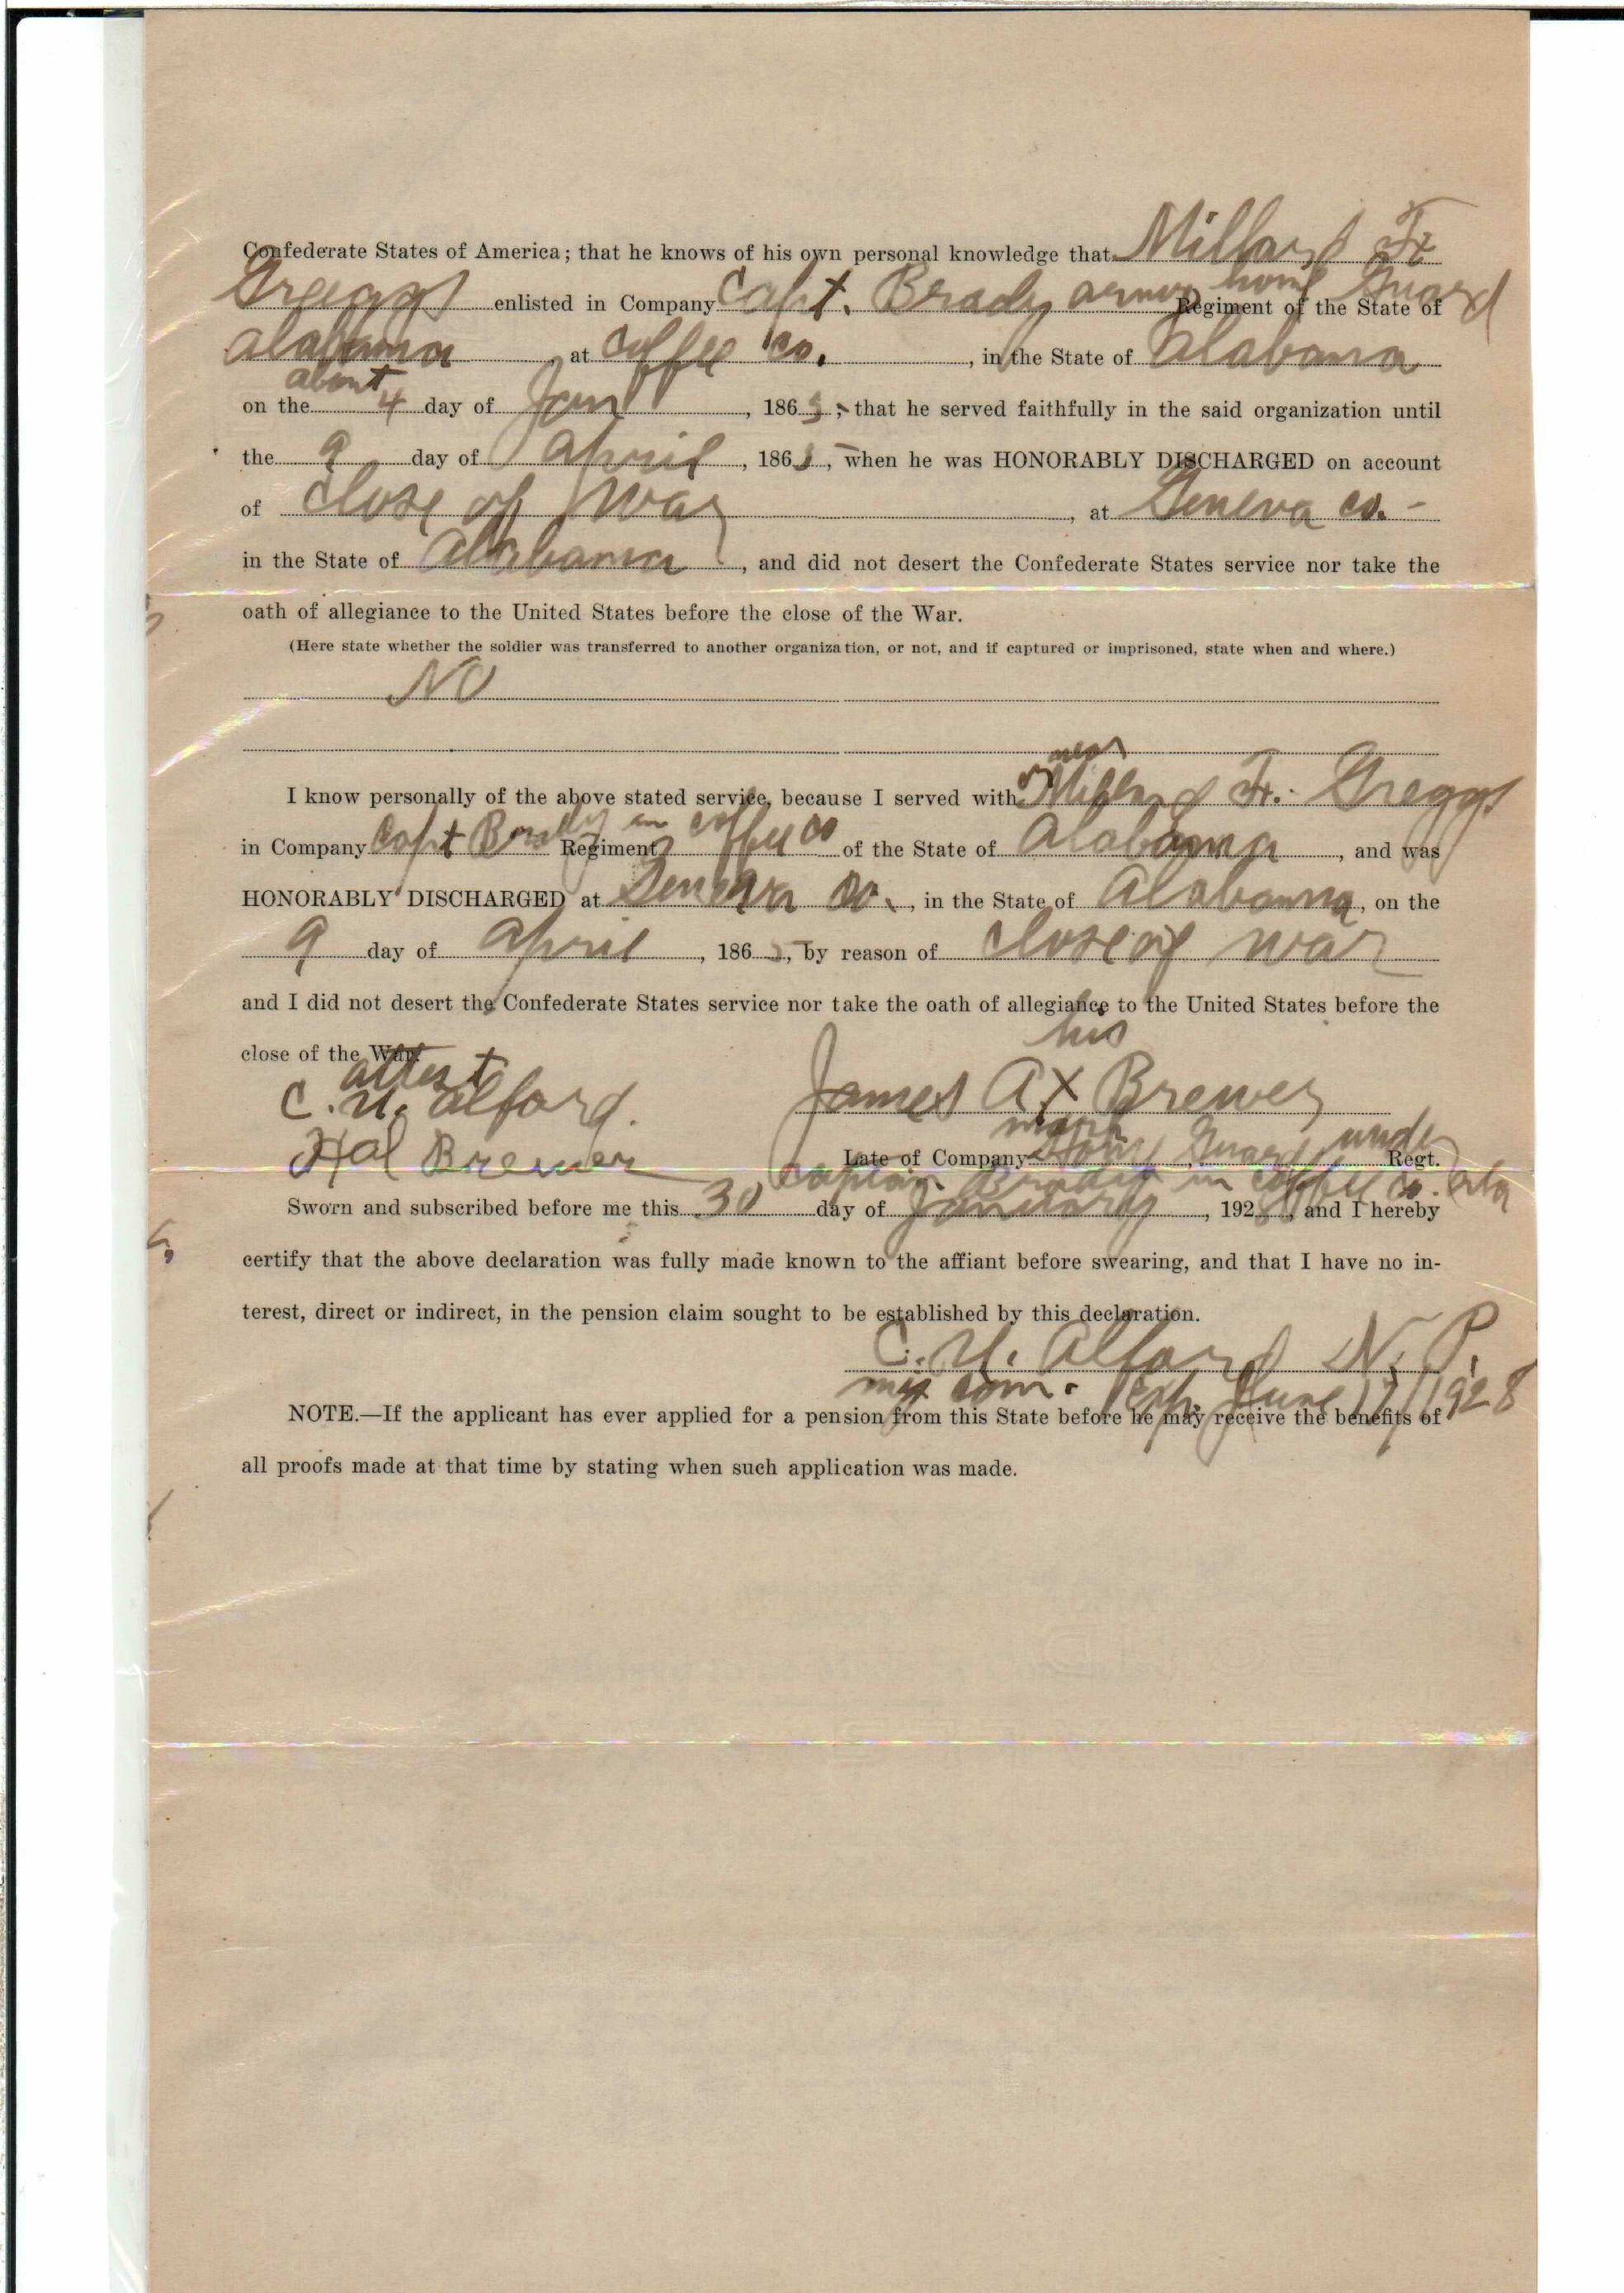 Confederate States of America; that he knows of his own personal knowledge that Millard Fr
Greggs enlisted in Company Capt. Brady army home Guard Regiment of the State of
Alabama, at Coffee Co., in the State of Alabama
on the about 4 day of Jan, 186 ; that he served faithfully in the said organization until
the 9 day of April, 186 , when he was HONORABLY DISCHARGED on account
of close of war, at Geneva Co. -
in the State of Alabama, and did not desert the Confederate States service nor take the
oath of allegiance to the United States before the close of the War.
(Here state whether the soldier was transferred to another organization, or not, and if captured or imprisoned, state when and where.)
NO
I know personally of the above stated service, because I served with or near Millard Fr. Greggs
in Company Capt Brady in Coffee Co Regiment of the State of Alabama, and was
HONORABLY DISCHARGED at Geneva Co., in the State of Alabama, on the
9 day of April, 1865, by reason of close of war
and I did not desert the Confederate States service nor take the oath of allegiance to the United States before the
close of the War.
his
attest
C. U. Alford.
James A X Brewer
mark
Hal Brewer
Late of Company Home Guard under Regt.
Captain Brady in Coffee Co. Ala
Sworn and subscribed before me this 30 day of January, 1928, and I hereby
certify that the above declaration was fully made known to the affiant before swearing, and that I have no in-
terest, direct or indirect, in the pension claim sought to be established by this declaration.
C. U. Alford N. P.
my com. Exp. June 17 1928
NOTE.—If the applicant has ever applied for a pension from this State before he may receive the benefits of
all proofs made at that time by stating when such application was made.